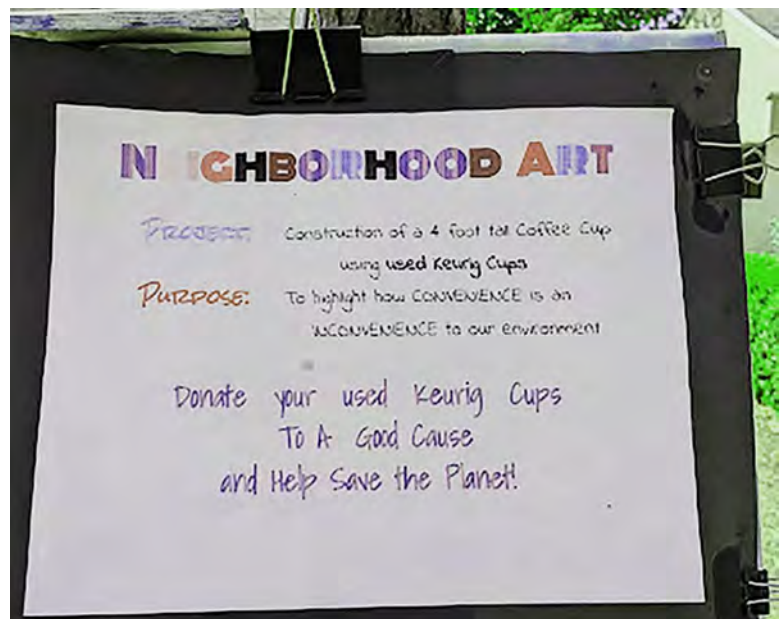 NEIGHBORHOOD ART
PROJECT: Construction of a 4 foot tall Coffee Cup
using used Keurig Cups
PURPOSE: To highlight how CONVENIENCE is an
INCONVENIENCE to our environment
Donate your used Keurig Cups
To A Good Cause
and Help Save the Planet!